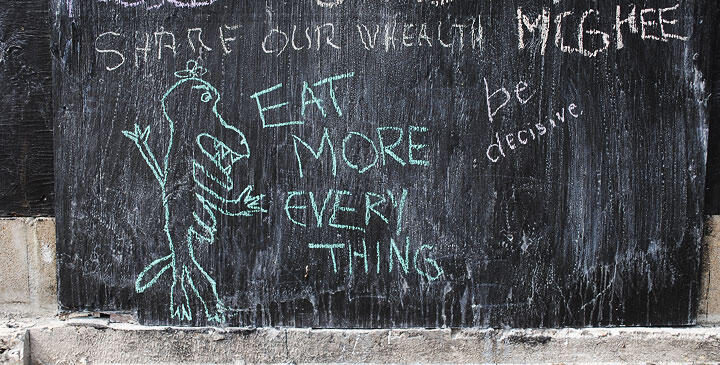 SHARE OUR WHEALTH MCGHEE
EAT
MORE
EVERY
THING
be
decisive.